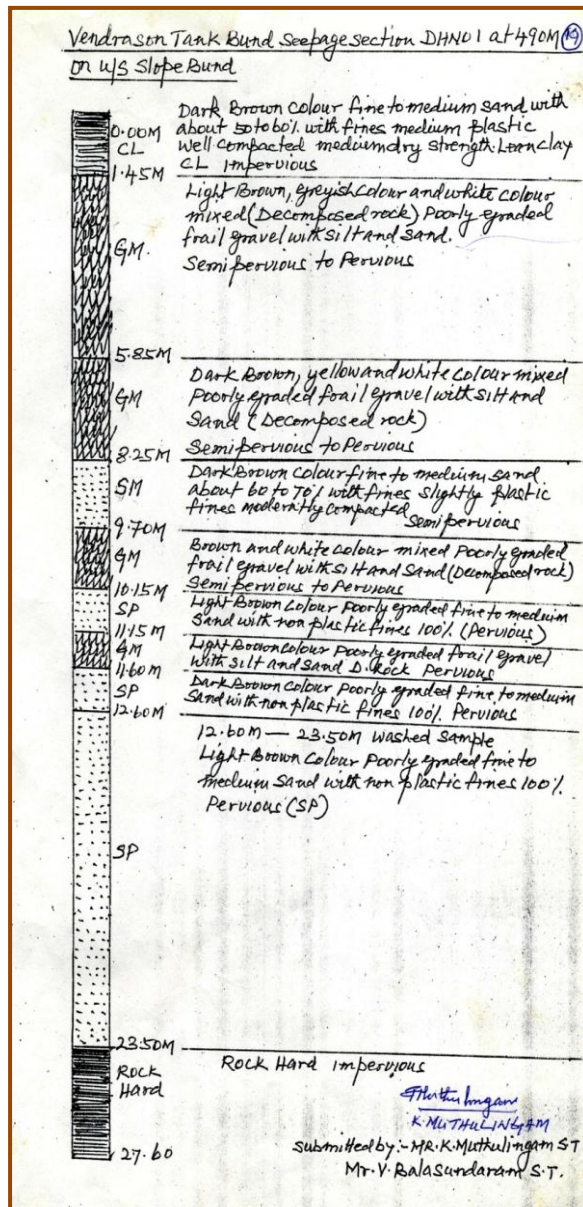 Vendrason Tank Bund Seepage section DHNO1 at 490M 19
on u/s Slope Bund
Dark Brown Colour fine to medium Sand with
0.00M about 50 to 60% with fines medium plastic
CL well compacted medium dry strength. Lean clay
1.45M CL impervious
Light Brown, greyish colour and white colour
mixed (Decomposed rock) Poorly graded
frail gravel with silt and sand.
GM. Semi pervious to Pervious
5.85M
Dark Brown, yellow and white colour mixed
GM Poorly graded frail gravel with silt and
Sand (Decomposed rock)
8.25M Semi pervious to Pervious
Dark Brown Colour fine to medium Sand
SM about 60 to 70% with fines slightly plastic
fines moderatly compacted Semi pervious
9.70M
GM Brown and white colour mixed Poorly graded
frail gravel with silt and sand (Decomposed rock)
10.15M Semi pervious to Pervious
SP Light Brown Colour Poorly graded fine to medium
11.15M Sand with non plastic fines 100% (Pervious)
GM Light Brown colour Poorly graded frail gravel
11.60M with silt and sand D. Rock Pervious
SP Dark Brown Colour Poorly graded fine to medium
12.60M Sand with non plastic fines 100% Pervious
12.60M — 23.50M washed sample
Light Brown Colour Poorly graded fine to
medium Sand with non plastic fines 100%
Pervious (SP)
SP
23.50M
ROCK Hard ROCK Hard impervious
K. MUTHULINGAM
27.60 Submitted by :- MR. K. Muthulingam S T
Mr. V. Balasundaram S.T.